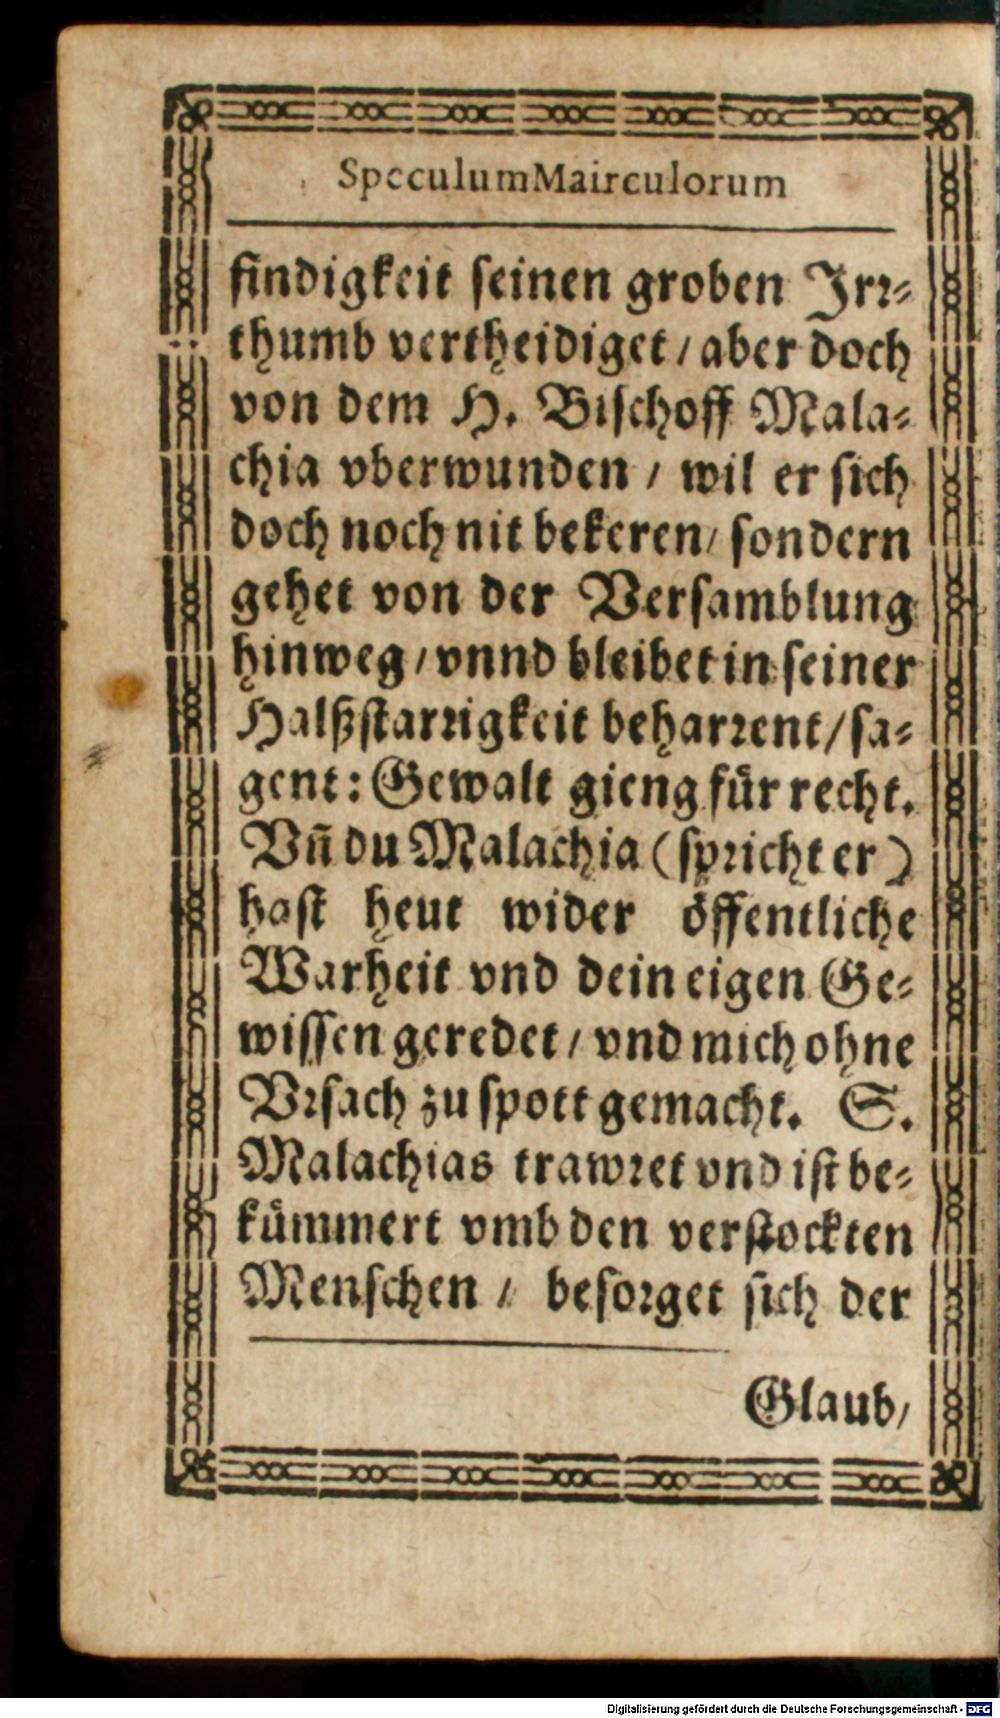 SpeculumMairculorum
findigkeit seinen groben Irr-
thumb vertheidiget / aber doch
von dem H. Bischoff Mala-
chia vberwunden / wil er sich
doch noch nit bekeren / sondern
gehet von der Versamblung
hinweg / vnnd bleibet in seiner
Halßstarrigkeit beharrent / sa-
gent: Gewalt gieng für recht.
Vñ du Malachia (spricht er)
hast heut wider öffentliche
Warheit vnd dein eigen Ge-
wissen geredet / vnd mich ohne
Vrsach zu spott gemacht. S.
Malachias trawret vnd ist be-
kümmert vmb den verstockten
Menschen / besorget sich der
Glaub /
Digitalisierung gefördert durch die Deutsche Forschungsgemeinschaft - DFG